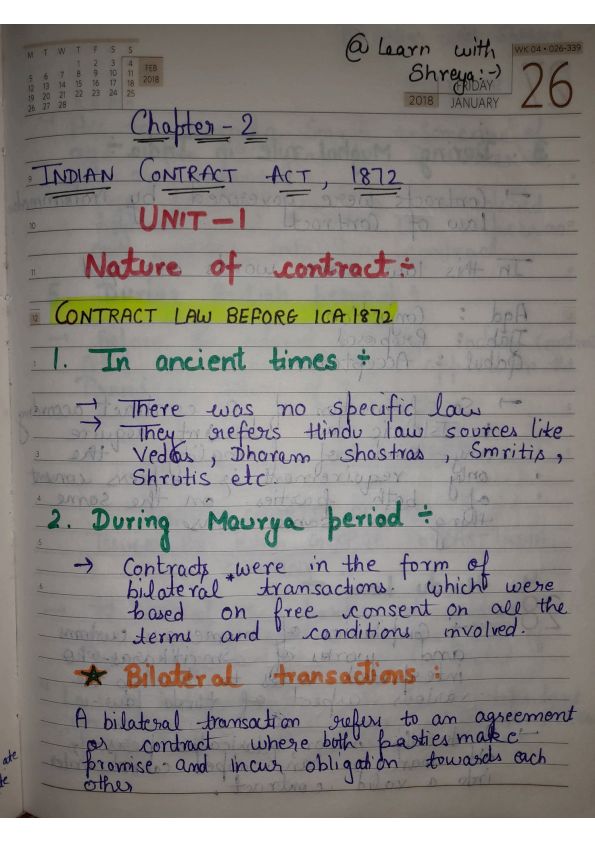 @ Learn with
Shreya:-)
M T W T F S S
1 2 3 4
5 6 7 8 9 10 11
12 13 14 15 16 17 18
19 20 21 22 23 24 25
26 27 28
FEB
2018
WK 04 • 026-339
FRIDAY
2018 JANUARY
26
Chapter - 2
INDIAN CONTRACT ACT, 1872
UNIT-I
Nature of contract ÷
CONTRACT LAW BEFORE ICA 1872
1. In ancient times ÷
→ There was no specific law
→ They refers Hindu law sources like
Vedas, Dharam shastras, Smritis,
Shrutis etc
2. During Maurya period ÷
→ Contracts were in the form of
bilateral* transactions. which were
based on free consent on all the
terms and conditions involved.
★ Bilateral transactions :
A bilateral transaction refers to an agreement
or contract where both parties make
promise and incur obligation towards each
other
9
10
11
12
1
2
3
4
5
6
ate
te